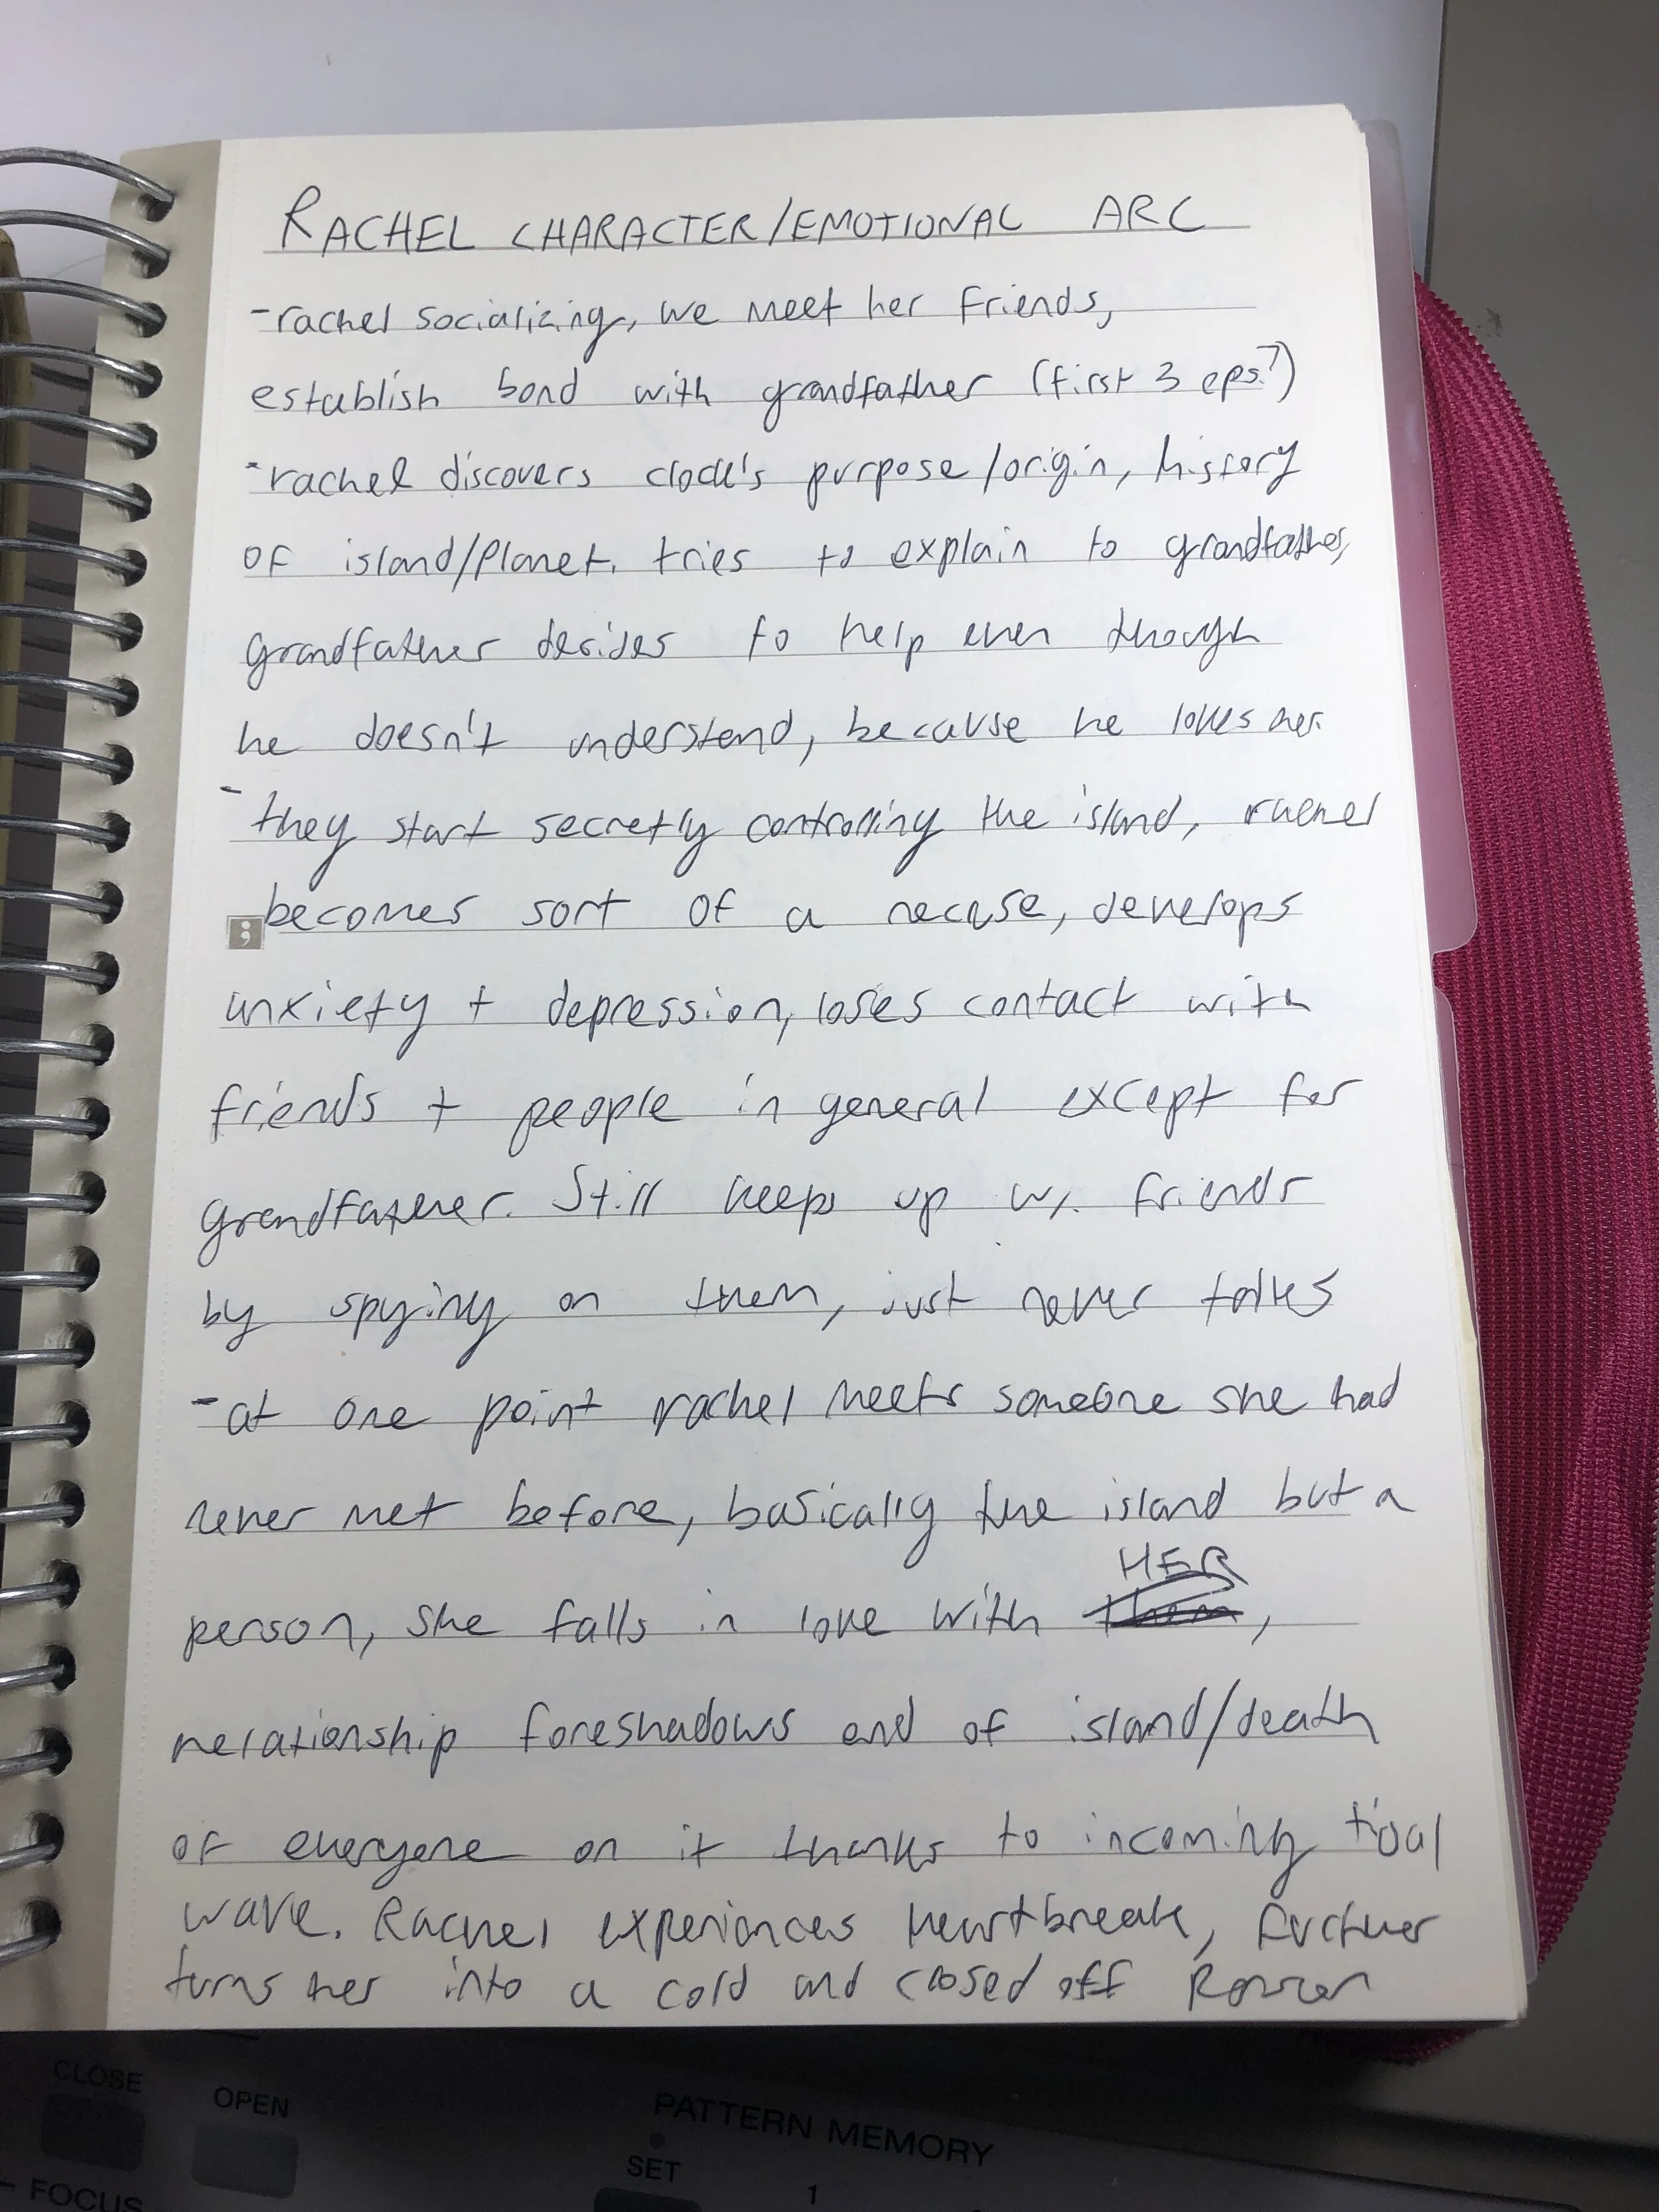 RACHEL CHARACTER/EMOTIONAL ARC
-rachel socializing, we meet her friends,
establish bond with grandfather (first 3 eps?)
-rachel discovers clock's purpose/origin, history
of island/planet. tries to explain to grandfather,
grandfather decides to help even though
he doesn't understand, because he loves her.
- they start secretly controlling the island, rachel
becomes sort of a recluse, develops
anxiety + depression, loses contact with
friends + people in general except for
grandfather. Still keeps up w/ friends
by spying on them, just never talks
-at one point rachel meets someone she had
never met before, basically the island but a
HER
person, she falls in love with them,
relationship foreshadows end of island/death
of everyone on it thanks to incoming tidal
wave. Rachel experiences heartbreak, further
turns her into a cold and closed off person
CLOSE
OPEN
PATTERN MEMORY
SET
1
FOCUS